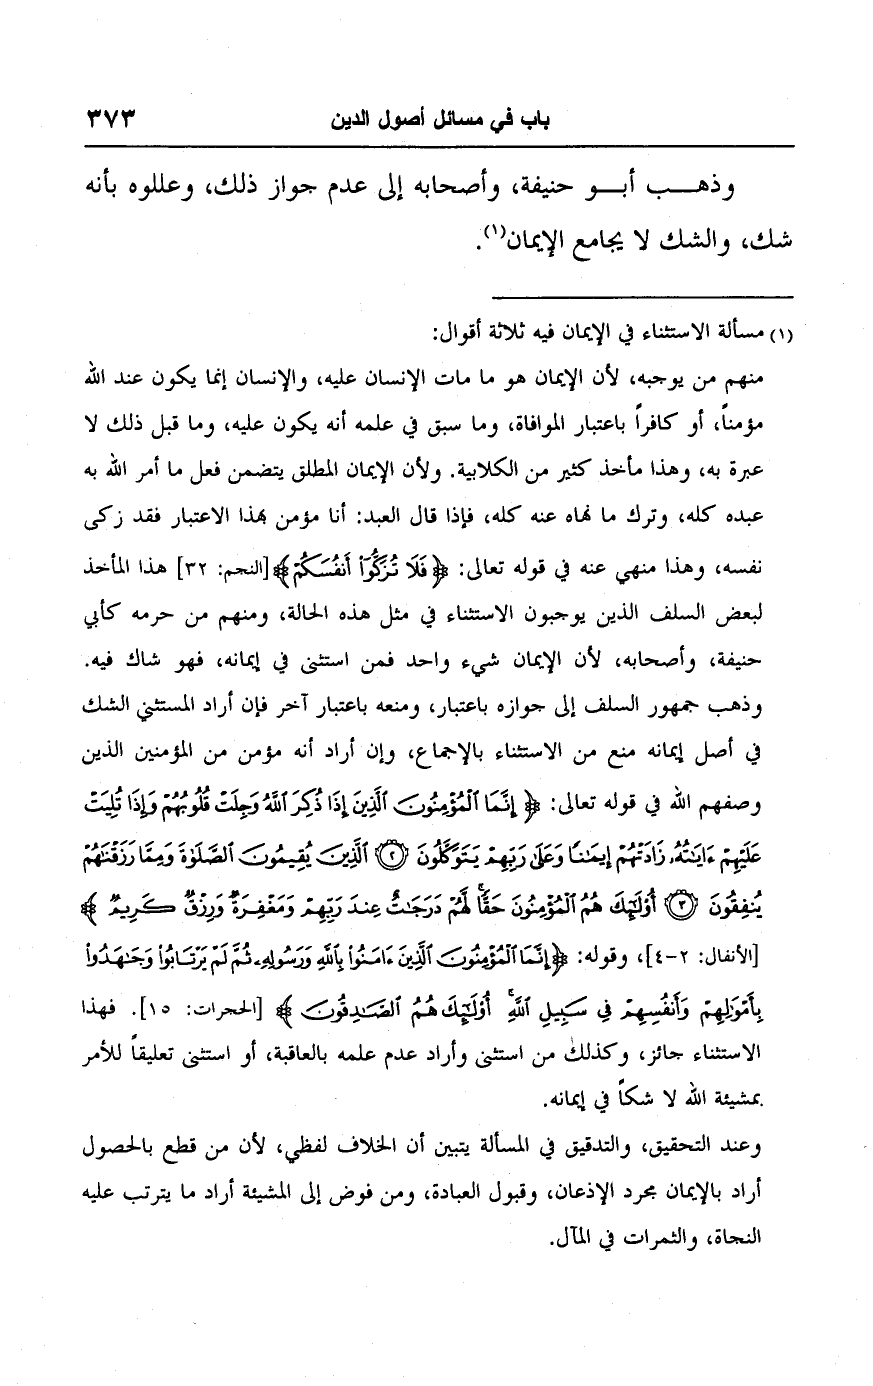 باب في مسائل أصول الدين ٣٧٣
وذهـــب أبـــو حنيفة، وأصحابه إلى عدم جواز ذلك، وعللوه بأنه
شك، والشك لا يجامع الإيمان(١).
(١) مسألة الاستثناء في الإيمان فيه ثلاثة أقوال:
منهم من يوجبه، لأن الإيمان هو ما مات الإنسان عليه، والإنسان إنما يكون عند الله
مؤمناً، أو كافراً باعتبار الموافاة، وما سبق في علمه أنه يكون عليه، وما قبل ذلك لا
عبرة به، وهذا مأخذ كثير من الكلابية. ولأن الإيمان المطلق يتضمن فعل ما أمر الله به
عبده كله، وترك ما نهاه عنه كله، فإذا قال العبد: أنا مؤمن بهذا الاعتبار فقد زكى
نفسه، وهذا منهي عنه في قوله تعالى: ﴿ فَلَا تُزَكُّوٓا۟ أَنفُسَكُمْ ﴾ [النجم: ٣٢] هذا المأخذ
لبعض السلف الذين يوجبون الاستثناء في مثل هذه الحالة، ومنهم من حرمه كأبي
حنيفة، وأصحابه، لأن الإيمان شيء واحد فمن استثنى في إيمانه، فهو شاك فيه.
وذهب جمهور السلف إلى جوازه باعتبار، ومنعه باعتبار آخر فإن أراد المستثني الشك
في أصل إيمانه منع من الاستثناء بالإجماع، وإن أراد أنه مؤمن من المؤمنين الذين
وصفهم الله في قوله تعالى: ﴿ إِنَّمَا ٱلْمُؤْمِنُونَ ٱلَّذِينَ إِذَا ذُكِرَ ٱللَّهُ وَجِلَتْ قُلُوبُهُمْ وَإِذَا تُلِيَتْ
عَلَيْهِمْ ءَايَـٰتُهُۥ زَادَتْهُمْ إِيمَـٰنًا وَعَلَىٰ رَبِّهِمْ يَتَوَكَّلُونَ ۝٢ ٱلَّذِينَ يُقِيمُونَ ٱلصَّلَوٰةَ وَمِمَّا رَزَقْنَـٰهُمْ
يُنفِقُونَ ۝٣ أُو۟لَـٰٓئِكَ هُمُ ٱلْمُؤْمِنُونَ حَقًّا ۚ لَّهُمْ دَرَجَـٰتٌ عِندَ رَبِّهِمْ وَمَغْفِرَةٌ وَرِزْقٌ كَرِيمٌ ﴾
[الأنفال: ٢-٤]، وقوله: ﴿ إِنَّمَا ٱلْمُؤْمِنُونَ ٱلَّذِينَ ءَامَنُوا۟ بِٱللَّهِ وَرَسُولِهِۦ ثُمَّ لَمْ يَرْتَابُوا۟ وَجَـٰهَدُوا۟
بِأَمْوَٰلِهِمْ وَأَنفُسِهِمْ فِى سَبِيلِ ٱللَّهِ ۚ أُو۟لَـٰٓئِكَ هُمُ ٱلصَّـٰدِقُونَ ﴾ [الحجرات: ١٥]. فهذا
الاستثناء جائز، وكذلك من استثنى وأراد عدم علمه بالعاقبة، أو استثنى تعليقاً للأمر
بمشيئة الله لا شكاً في إيمانه.
وعند التحقيق، والتدقيق في المسألة يتبين أن الخلاف لفظي، لأن من قطع بالحصول
أراد بالإيمان مجرد الإذعان، وقبول العبادة، ومن فوض إلى المشيئة أراد ما يترتب عليه
النجاة، والثمرات في المآل.